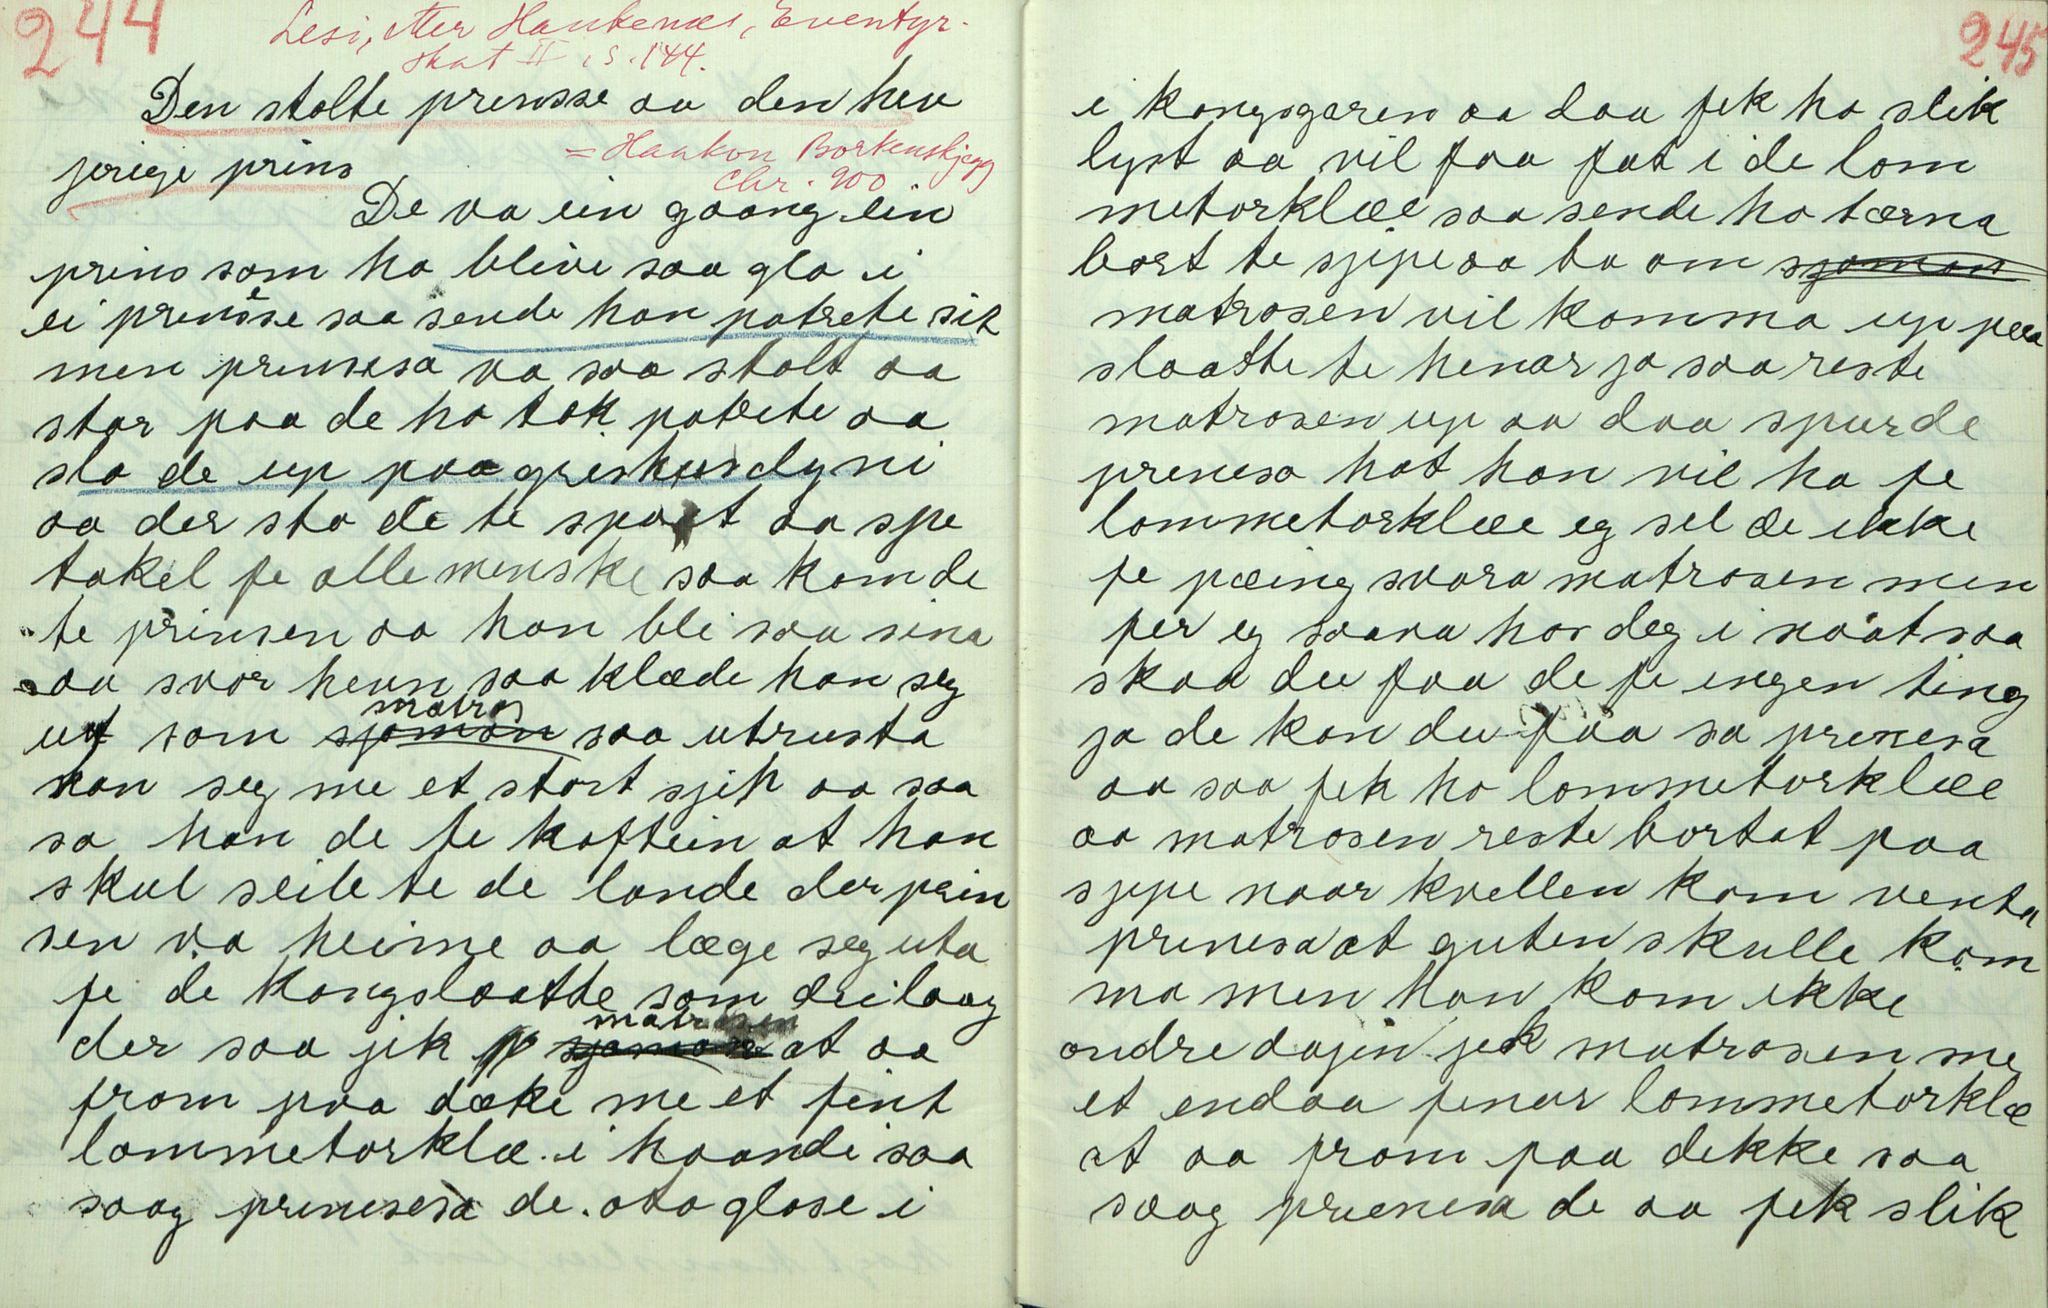 244
Lesi, etter Haukenæs, Eventyr-
skat II, s. 144.
Den stolte prensse aa den hev
jerige prins
= Haakon Borkenskjegg
Chr. 900
De va ein gaang ein
prins som ha blive saa gla i
ei prensese saa sende han potrete sit
men prinsesa va saa stolt aa
stor paa de ho tok potrete aa
slo de up paa grishusdyni
aa der sto de te spot aa spe
takel fe alle menske saa kom de
te prinsen aa han bli saa sina
aa svor hevn saa klæde han seg
ut som sjoman matros saa utrusta
han seg me et stort sjip aa saa
sa han de te kaftein at han
skul seile te de lande der prin
sen va heime aa læge seg uta
fe de kongslaatte som dei laag
der saa jik sjoman matrosen at aa
from paa dæke me et fint
lommetorklæ i haandi saa
saag prinsesa de ota glase i
245
i kongsgaren aa daa fek ho slik
lyst aa vil faa fat i de lom
metorklæe saa sende ho tærna
bort te sjipe aa ba om sjoman
matrosen vil komma up paa
slaatte te henar ja saa reste
matrosen up aa daa spurde
prinesa hot han vil ha fe
lommetorklæe eg sel de ikke
fe pæing svara matrosen men
fer eg saava hos deg i naat saa
skaa du faa de fe ingen ting
ja de kan du faa sa prinesa
aa saa fek ho lommetorklæe
aa matrosen reste bortat paa
sjipe naar kvellen kom venta
prinesa at guten skulle kom
ma men han kom ikke
andre dajin jek matrosen me
et endaa finar lommetorklæ
at aa from paa dekke saa
saag prinesa de aa fek slik